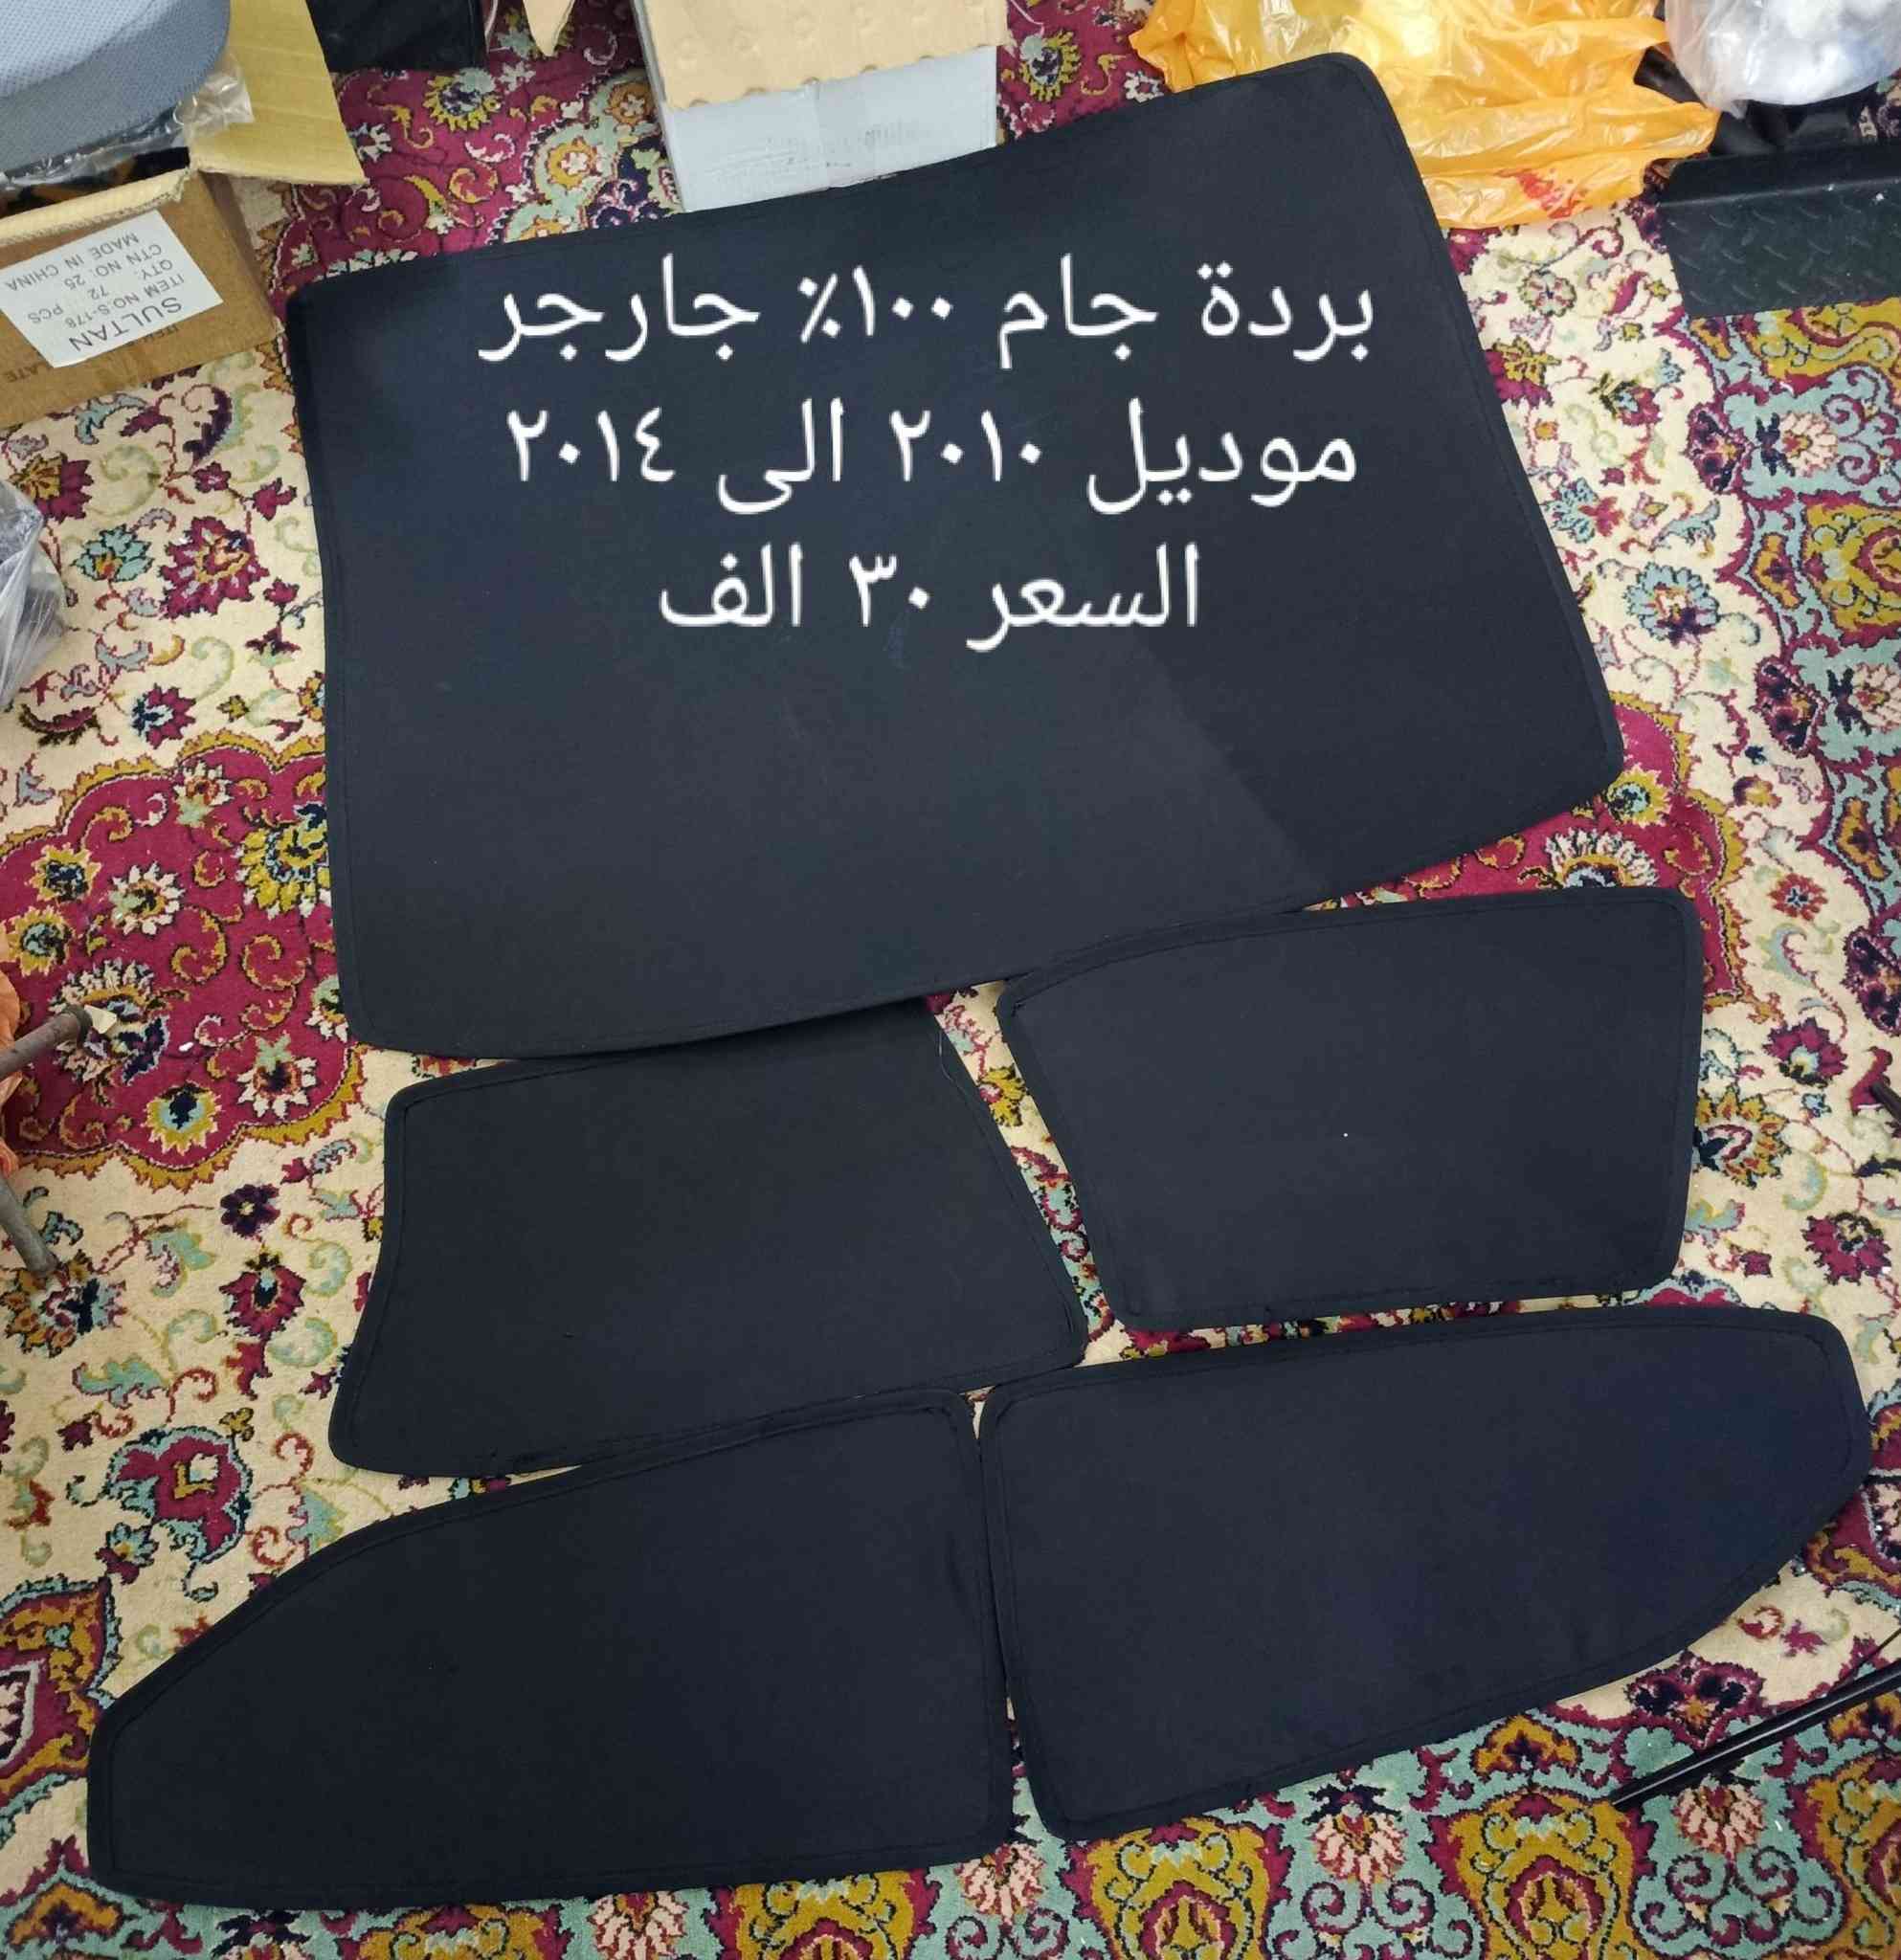 بردة جام ١٠٠٪ جارجر
موديل ٢٠١٠ الى ٢٠١٤
السعر ٣٠ الف
SULTAN
ITEM NO. S-178
QTY. 72 PCS
CTN NO: 25
MADE IN CHINA